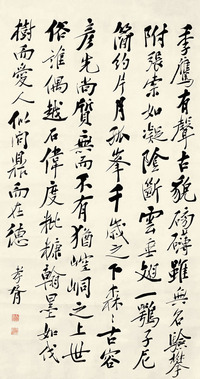 季鷹有聲古貌磅礴雖無名驗攀
附張索如凝陰斷雲垂翅一鶚子尼
簡約片月孤峯千歲之下森〻古容
彥先尚質無而不有猶崆峒之上世
俗誰偶越石偉度粃糠翰墨如伐
樹而愛人似問鼎而在德
孝胥